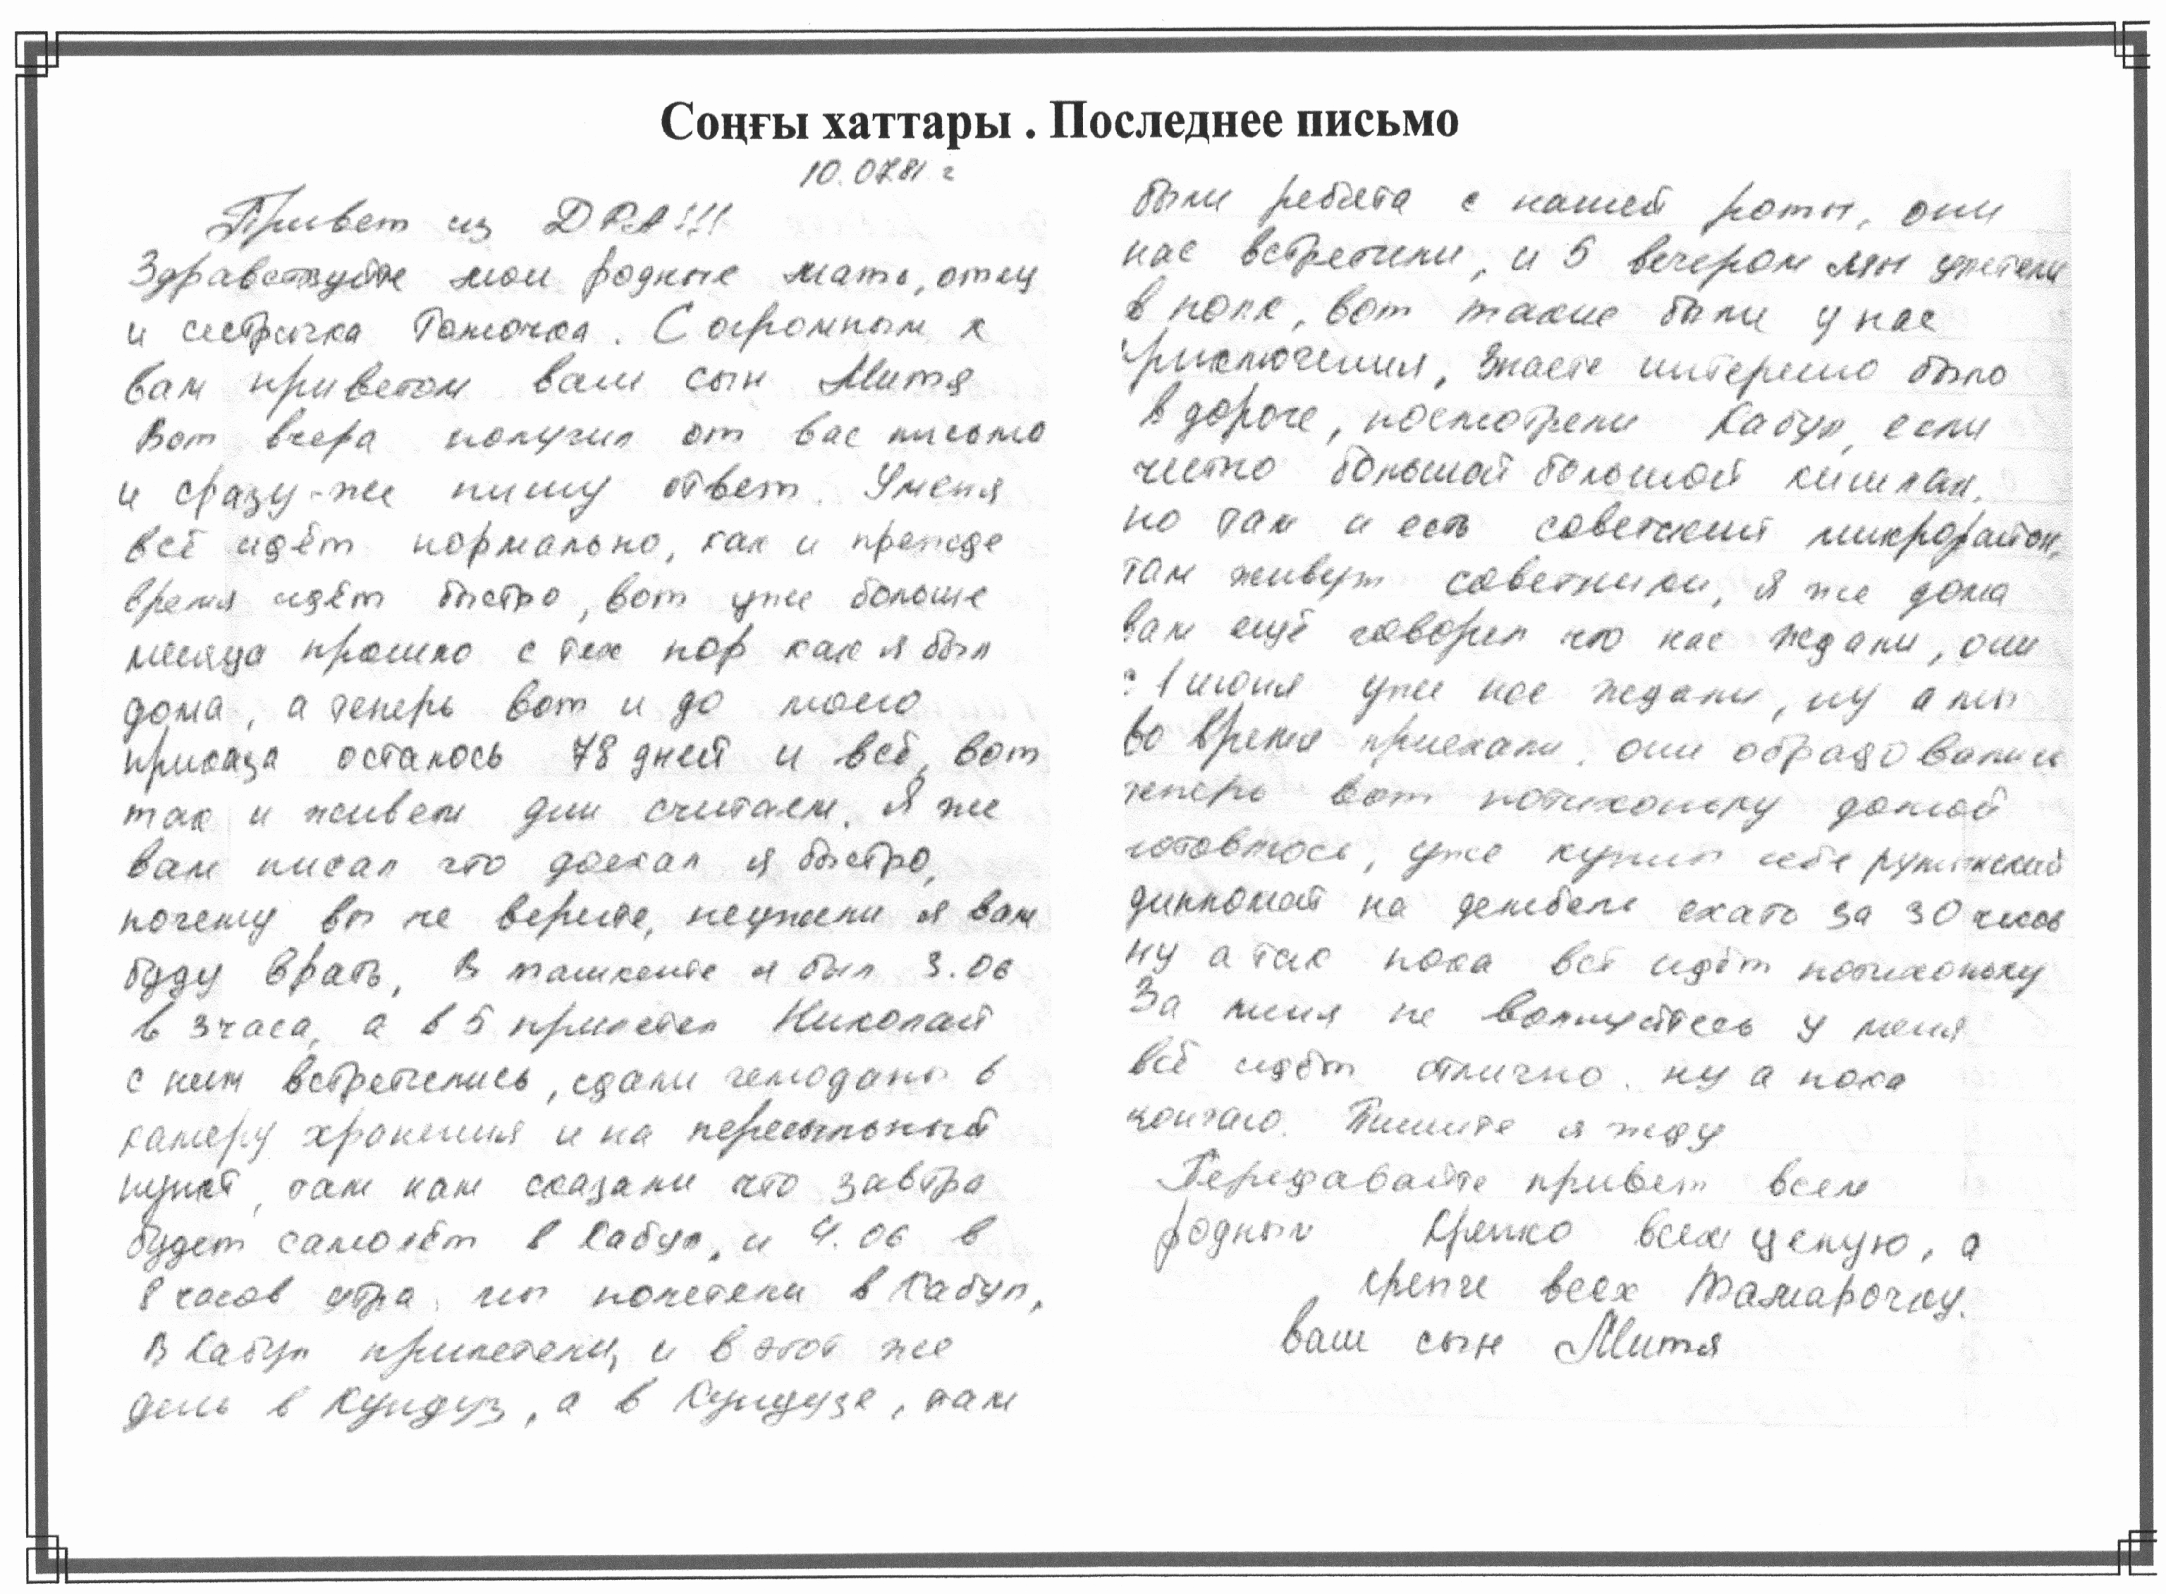 Соңғы хаттары . Последнее письмо
10.07.81 г
Привет из ДРА!!!
Здравствуйте мои родные мать, отец
и сестричка Томочка. С огромным к
вам приветом ваш сын Митя
Вот вчера получил от вас письмо
и сразу-же пишу ответ. У меня
всё идёт нормально, как и прежде
время идёт быстро, вот уже больше
месяца прошло с тех пор как я был
дома, а теперь вот и до моего
приказа осталось 78 дней и всё, вот
так и живем дни считаем. Я же
вам писал что доехал я быстро,
почему вы не верите, неужели я вам
буду врать, В ташкенте я был 3.06
в 3 часа, а в 5 прилетел Николай
с ним встретились, сдали чемоданы в
камеру хранения и на пересыльный
пункт, там нам сказали что завтра
будет самолёт в Кабул, и 4.06 в
8 часов утра мы полетели в Кабул,
В Кабул прилетели, и в этот же
день в Кундуз, а в Кундузе, там
были ребята с нашей роты, они
нас встретили, и 5 вечером мы улетели
в полк, вот такие были у нас
приключения, Знаете интересно было
в дороге, посмотрели Кабул, если
честно большой большой кишлак,
но там и есть советский микрорайон,
там живут советники, я же дома
вам ещё говорил что нас ждали, они
с 1 июня уже нас ждали, ну а мы
во время приехали. они обрадовались
теперь вот потихоньку домой
готовлюсь, уже купил себе
дипломат на дембель ехать за 30 чеков
ну а так пока всё идёт потихоньку
За меня не волнуйтесь у меня
всё идёт отлично. ну а пока
кончаю. Пишите я жду
Передавайте привет всем
родным Крепко всех целую, а
крепче всех Тамарочку.
ваш сын Митя